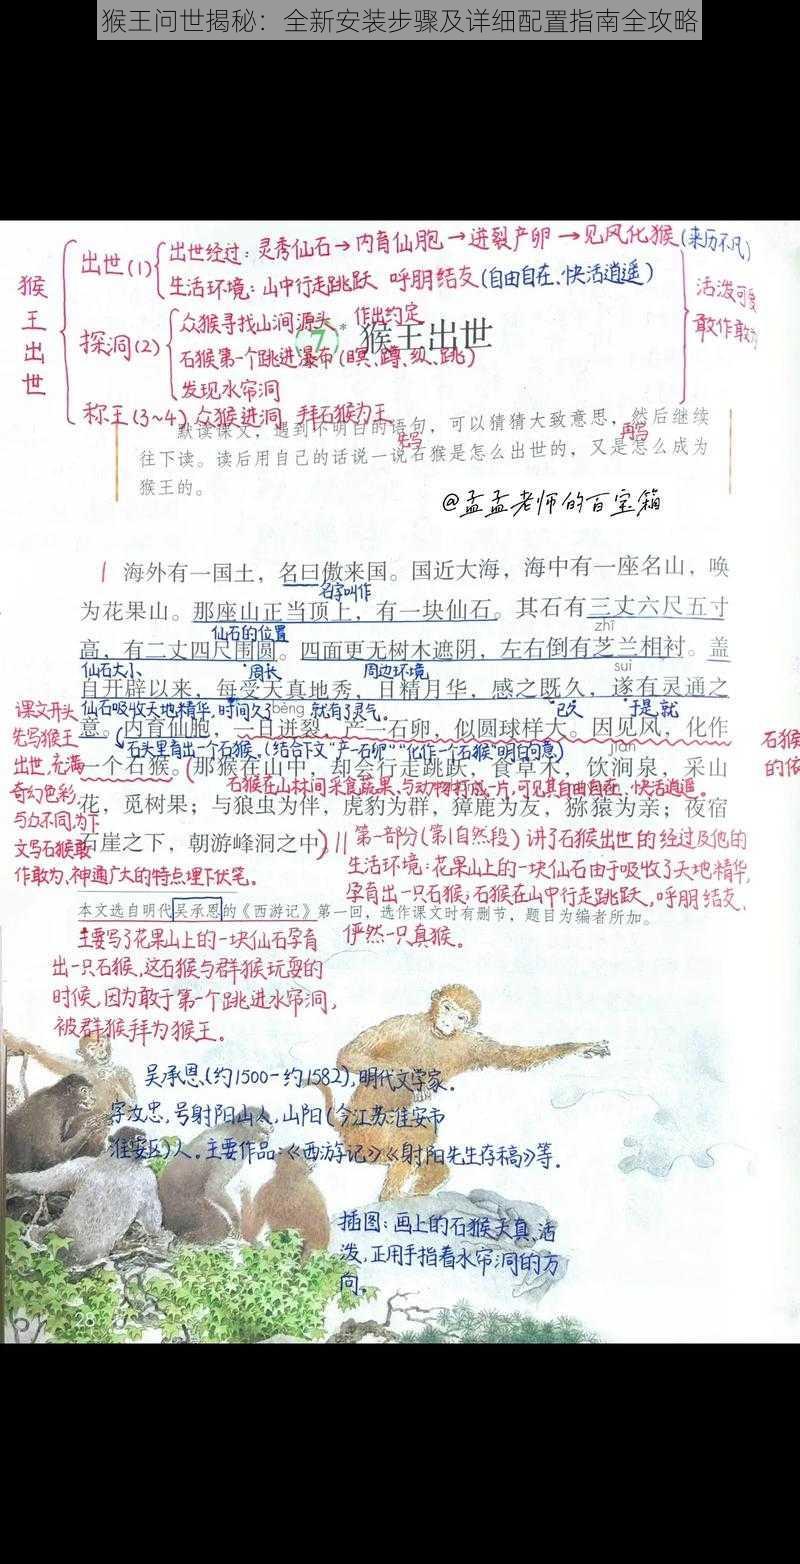 猴王问世揭秘：全新安装步骤及详细配置指南全攻略
猴王出世
出世(1)
出世经过：灵秀仙石→内育仙胞→迸裂产卵→见风化猴(来历不凡)
生活环境：山中行走跳跃 呼朋结友(自由自在、快活逍遥)
探洞(2)
众猴寻找山涧源头 作出约定
石猴第一个跳进瀑布(瞑、蹲、纵、跳)
发现水帘洞
称王(3~4) 众猴进洞 拜石猴为王
活泼可爱
敢作敢为
7* 猴王出世
默读课文，遇到不明白的语句，可以猜猜大致意思，然后继续
先写 再写
往下读。读后用自己的话说一说石猴是怎么出世的，又是怎么成为
猴王的。
@孟孟老师的百宝箱
1 海外有一国土，名曰傲来国。国近大海，海中有一座名山，唤
名字叫作
为花果山。那座山正当顶上，有一块仙石。其石有三丈六尺五寸
仙石的位置 zhī
高，有二丈四尺围圆。四面更无树木遮阴，左右倒有芝兰相衬。盖
仙石大小 周长 周边环境 suì
自开辟以来，每受天真地秀，日精月华，感之既久，遂有灵通之
仙石吸收天地精华，时间久了 bèng 就有了灵气。 已久 于是，就
意。内育仙胞，一日迸裂，产一石卵，似圆球样大。因见风，化作
石头里育出一个石猴。(结合下文“产一石卵”“化作一个石猴”明白词意) jiàn
一个石猴。(那猴在山中，却会行走跳跃，食草木，饮涧泉，采山
石猴在山林间采食蔬果，与动物打成一片，可见其自由自在、快活逍遥。
花，觅树果；与狼虫为伴，虎豹为群，獐鹿为友，猕猿为亲；夜宿
石崖之下，朝游峰洞之中)||
课文开头
先写猴王
出世，充满
奇幻色彩，
与众不同，为下
文写石猴敢
作敢为、神通广大的特点埋下伏笔。
石猴
的依
第一部分(第1自然段) 讲了石猴出世的经过及他的
生活环境：花果山上的一块仙石由于吸收了天地精华，
孕育出一只石猴；石猴在山中行走跳跃，呼朋结友，
俨然一只真猴。
本文选自明代吴承恩的《西游记》第一回，选作课文时有删节，题目为编者所加。
主要写了花果山上的一块仙石孕育
出一只石猴，这石猴与群猴玩耍的
时候，因为敢于第一个跳进水帘洞，
被群猴拜为猴王。
吴承恩(约1500-约1582)，明代文学家。
字汝忠，号射阳山人，山阳(今江苏淮安市
淮安区)人。主要作品：《西游记》《射阳先生存稿》等。
插图：画上的石猴天真、活
泼，正用手指着水帘洞的方
向。
28